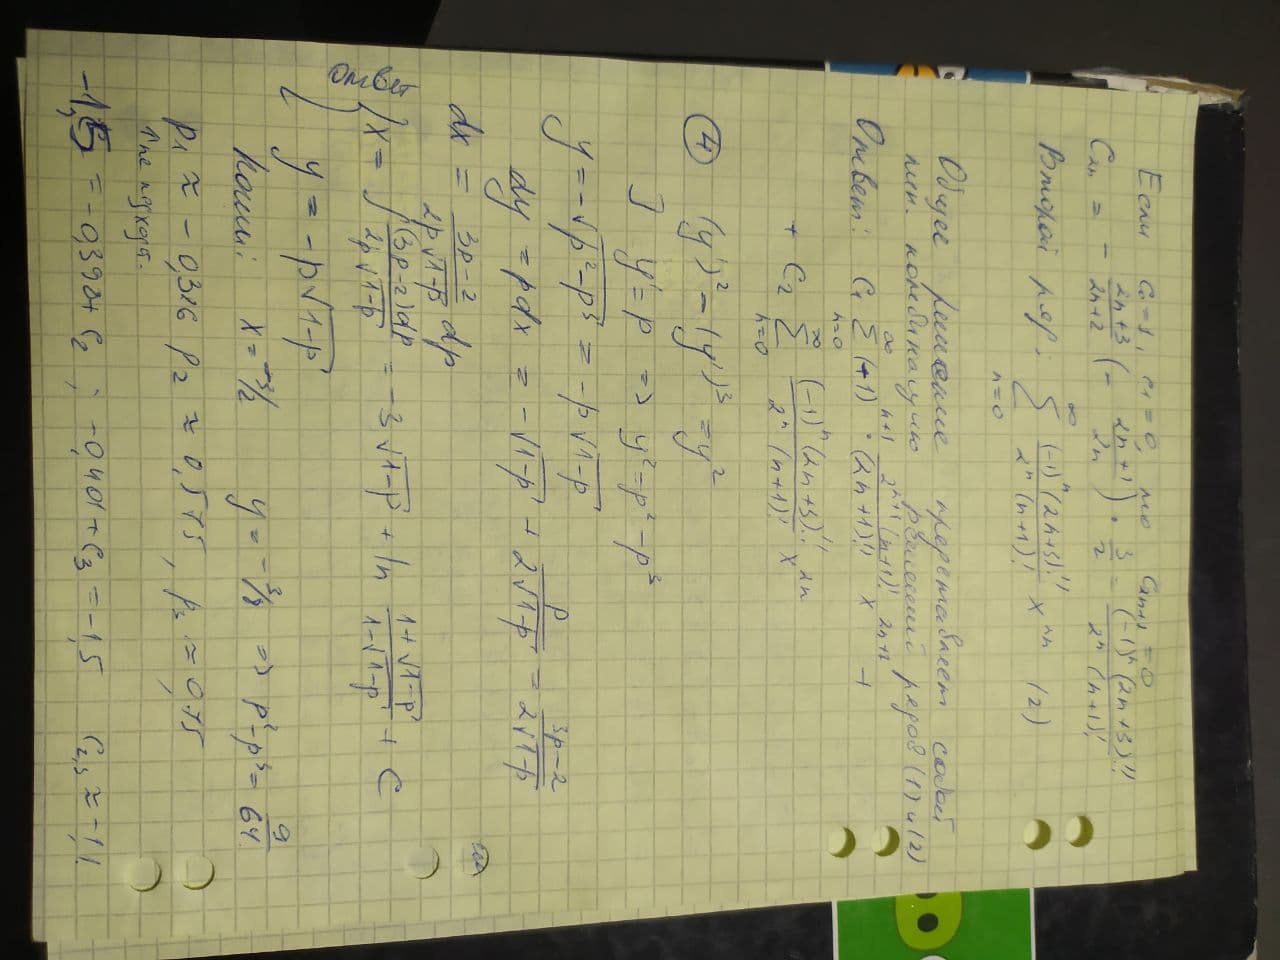 Если c₀=1, c₁=0, то c₂ₙ₊₁=0
C₂ₙ = - (2n+3)/(2n+2) (- (2n+1)/(2n)) · 3/2 = (-1)ⁿ (2n+3)!!/(2ⁿ (n+1)!)
Второй ряд: ∑_{n=0}^{∞} (-1)ⁿ(2n+3)!!/(2ⁿ(n+1)!) x (2)
Общее решение представляет собой
лин. комбинацию решений рядов (1) и (2)
Ответ: C₁ ∑_{n=0}^{∞} (-1)ⁿ⁺¹ · 2ⁿ⁺¹(n+1)!/(2n+1)!! x²ⁿ⁺¹ +
+ C₂ ∑_{n=0}^{∞} (-1)ⁿ(2n+3)!!/(2ⁿ (n+1)!) x²ⁿ
④ (y')² - (y')³ = y²
] y' = p => y² = p² - p³
y = -√(p²-p³) = -p√(1-p)
dy = pdx = -√(1-p) + p/(2√(1-p)) = (3p-2)/(2√(1-p))
dx = (3p-2)/(2p√(1-p)) dp
Ответ { x = ∫ (3p-2)dp/(2p√(1-p)) = -3√(1-p) + ln (1+√(1-p))/(1-√(1-p)) + C
y = -p√(1-p)
Коши: x = -3/2 y = -3/8 => p²-p³ = 9/64
p₁ ≈ -0,326 p₂ ≈ 0,575, p₃ ≈ 0,75
↑не подходт.
-1,5 = -0,392+C₂ ; -0,401+C₃ = -1,5 C₂,₃ ≈ -1,1